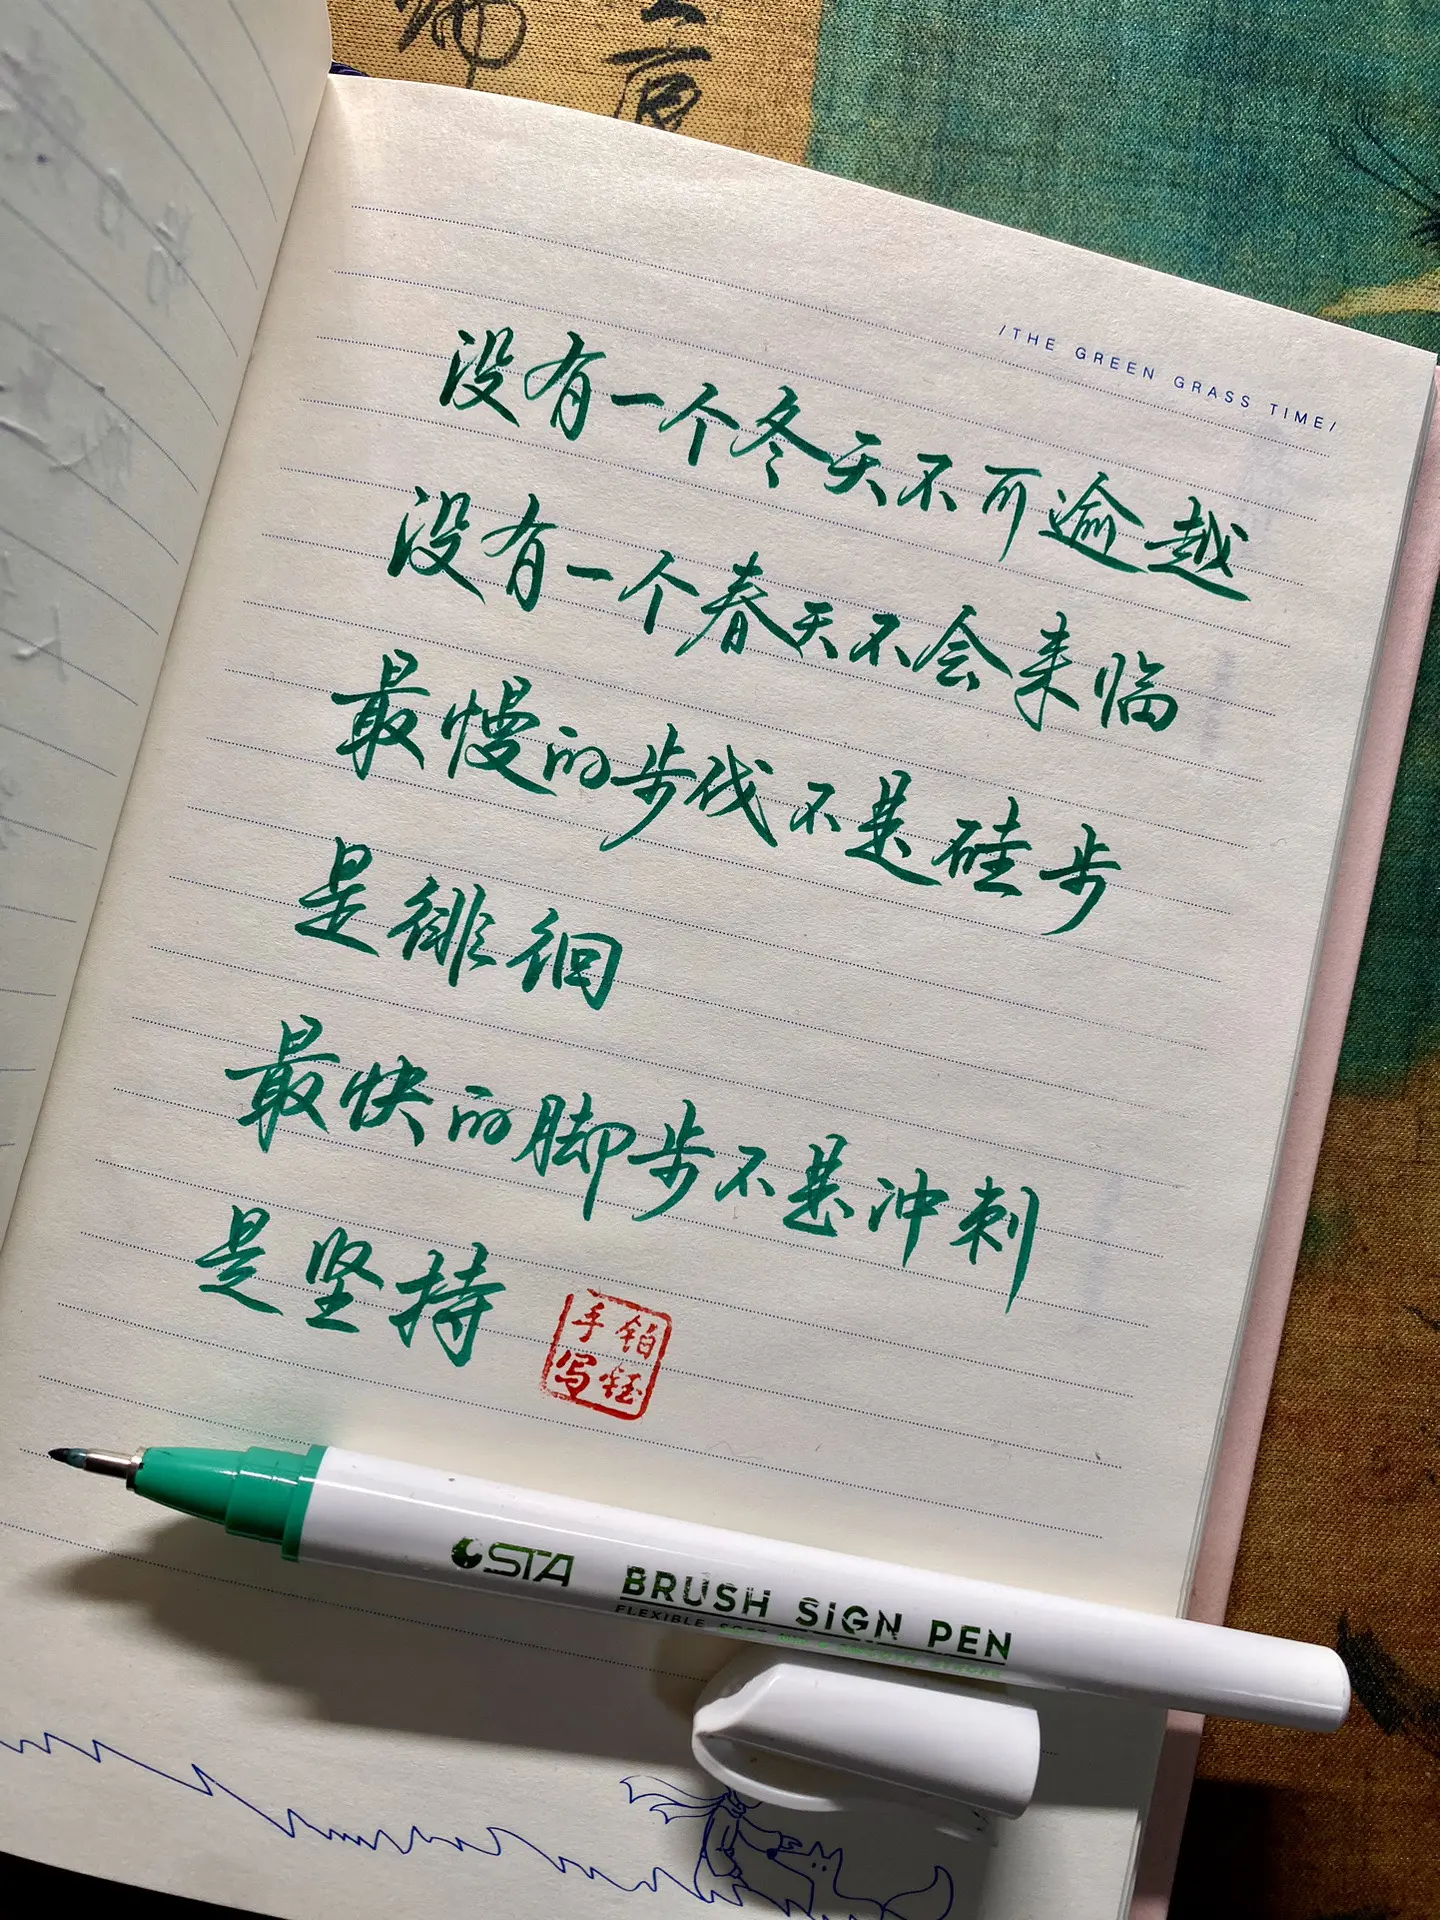 /THE GREEN GRASS TIME/
没有一个冬天不可逾越
没有一个春天不会来临
最慢的步伐不是硅步
是徘徊
最快的脚步不是冲刺
是坚持
铂钰
手写
STA BRUSH SIGN PEN
FLEXIBLE